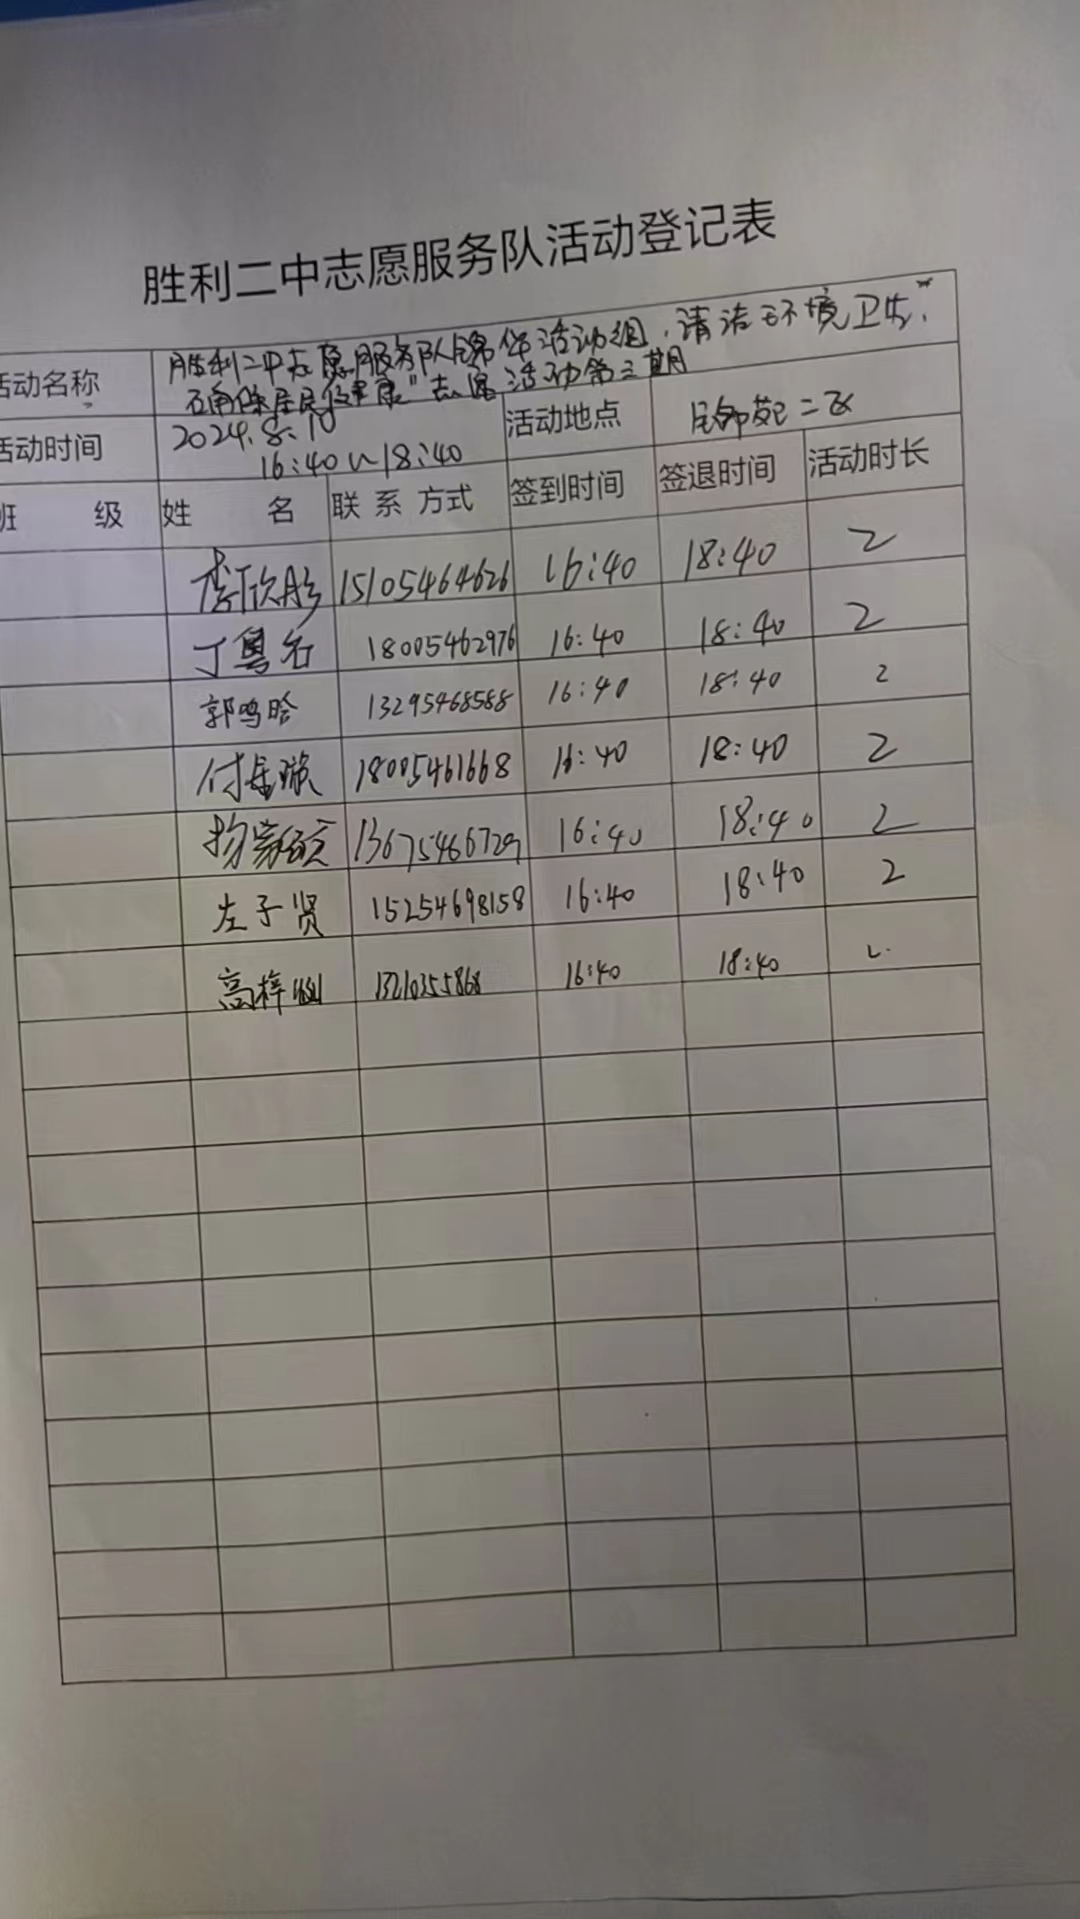 胜利二中志愿服务队活动登记表
活动名称 胜利二中志愿服务队锦华活动组，清洁环境卫生，
确保居民健康"志愿活动第三期
活动时间 2024.8.10 16:40~18:40 活动地点 二区
班 级 姓 名 联系方式 签到时间 签退时间 活动时长
李欣彤 15105464626 16:40 18:40 2
丁粤石 18005462976 16:40 18:40 2
郭鸣晗 13295468588 16:40 18:40 2
付 18005461668 16:40 18:40 2
杨家 13675466729 16:40 18:40 2
左子贤 15254698158 16:40 18:40 2
高梓 16:40 18:40